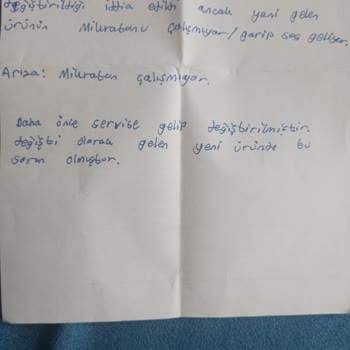 değiştirildiği iddia edildi ancak yeni gelen
ürünün Mikrafonu çalışmıyor/garip ses geliyor.
Arıza: Mikrafon çalışmıyor.
Daha önce servise gelip değiştirilmiştir.
değişti olarak gelen yeni üründe bu
sorun olmuştur.